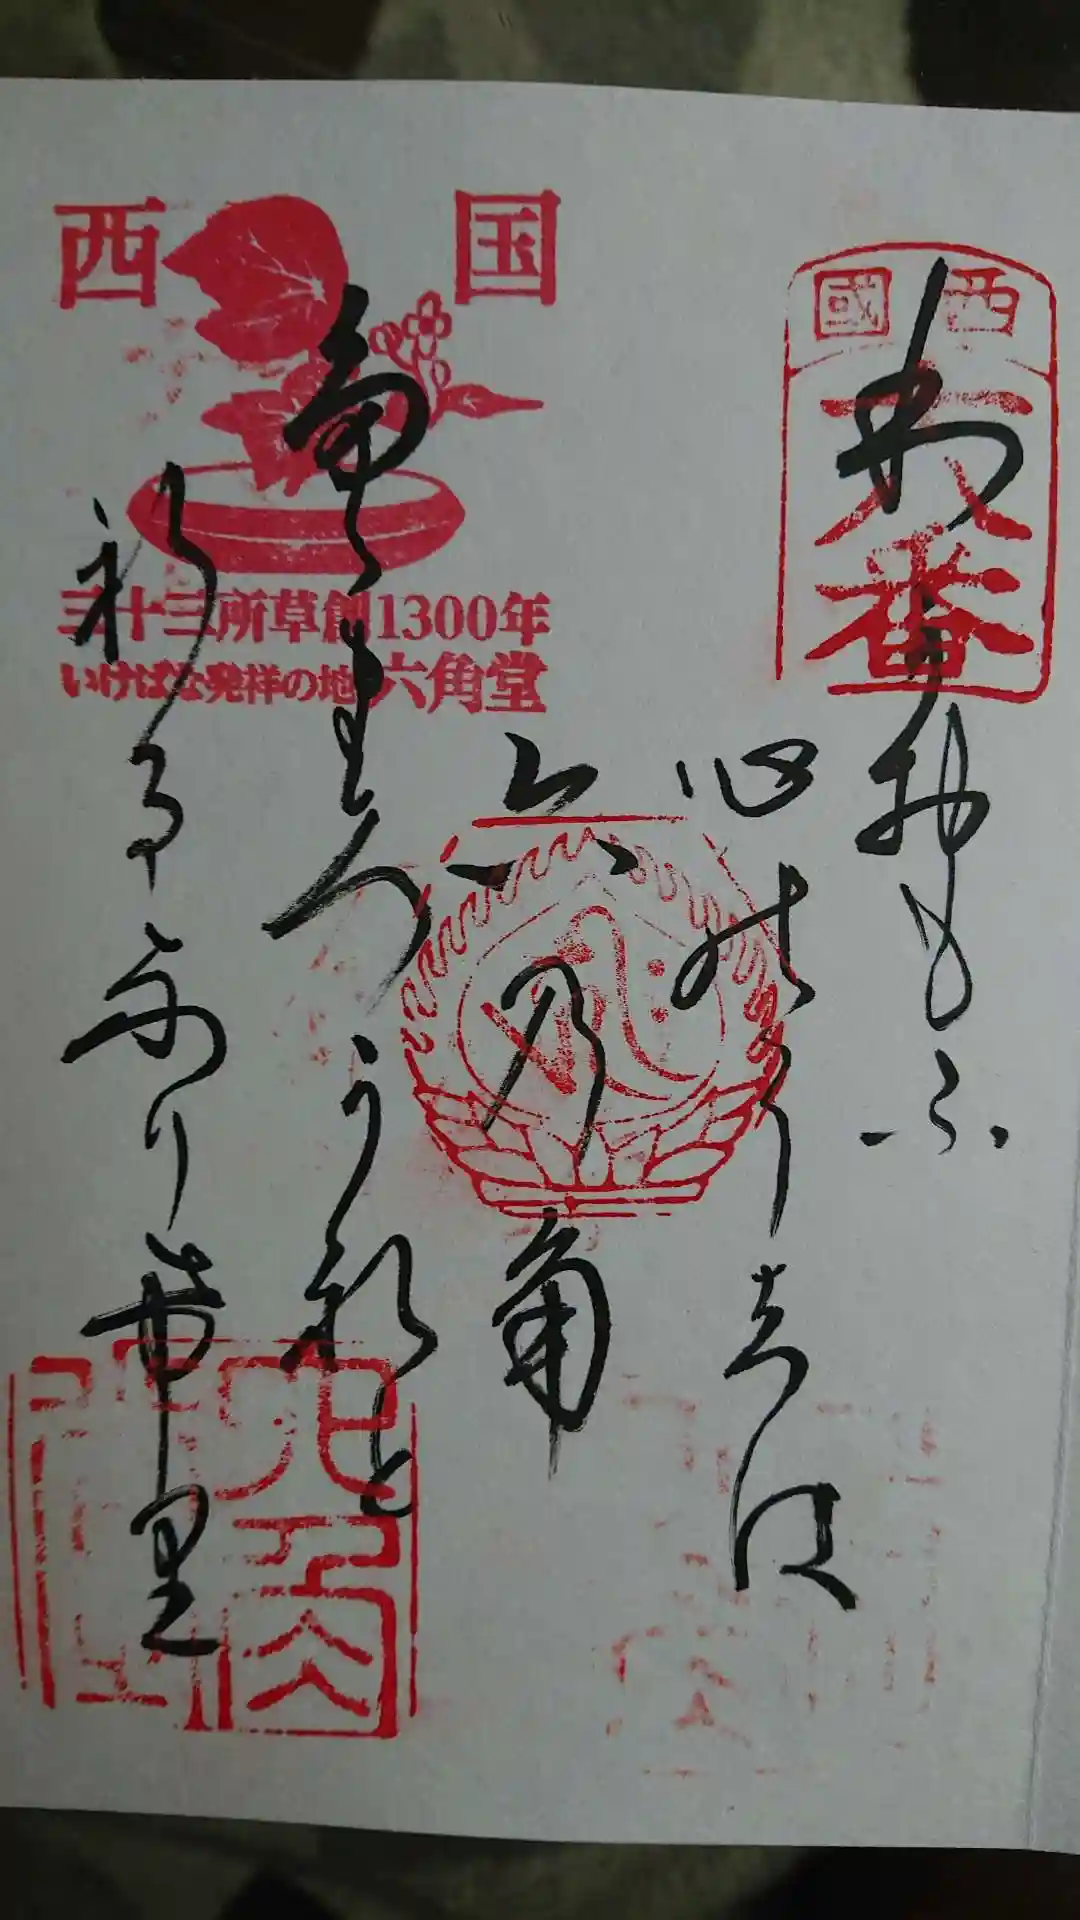 西國
十八番
わがおもふ
心のうちは
六乃角
たゞまろかれと
祈るなりけ里
西国
三十三所草創1300年
いけばな発祥の地 六角堂